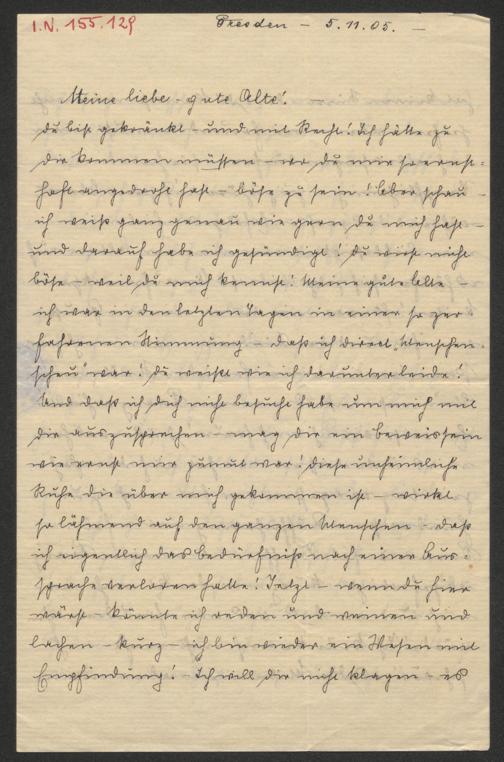 I.N. 155.129
Dresden – 5.11.05. –
Meine liebe - gute Alte!
Du bist gekränkt - und mit Recht! Ich hätte zu
dir kommen müssen - wo du mir so ernst-
haft angedroht hast - böse zu sein! Aber schau -
ich weiß ganz genau wie gern du mich hast -
und darauf habe ich gesündigt! Du wirst nicht
böse - weil du mich kennst! Meine gute Alte -
ich war in den letzten Tagen in einer so zer-
fahrenen Stimmung - daß ich direct „Menschen-
scheu" war! Du weißt wie ich darunter leide!
Und daß ich dich nicht besucht habe um mich mit
dir auszusprechen - mag dir ein Beweis sein
wie ernst mir zumut war! Diese unheimliche
Ruhe die über mich gekommen ist - wirkt
so lähmend auf den ganzen Menschen - daß
ich eigentlich das Bedürfniß nach einer Aus-
sprache verloren hatte! Jetzt - wenn du hier
wärst - könnte ich reden und weinen und
lachen - kurz - ich bin wieder ein Wesen mit
Empfindung! - Ich will dir nicht klagen - es